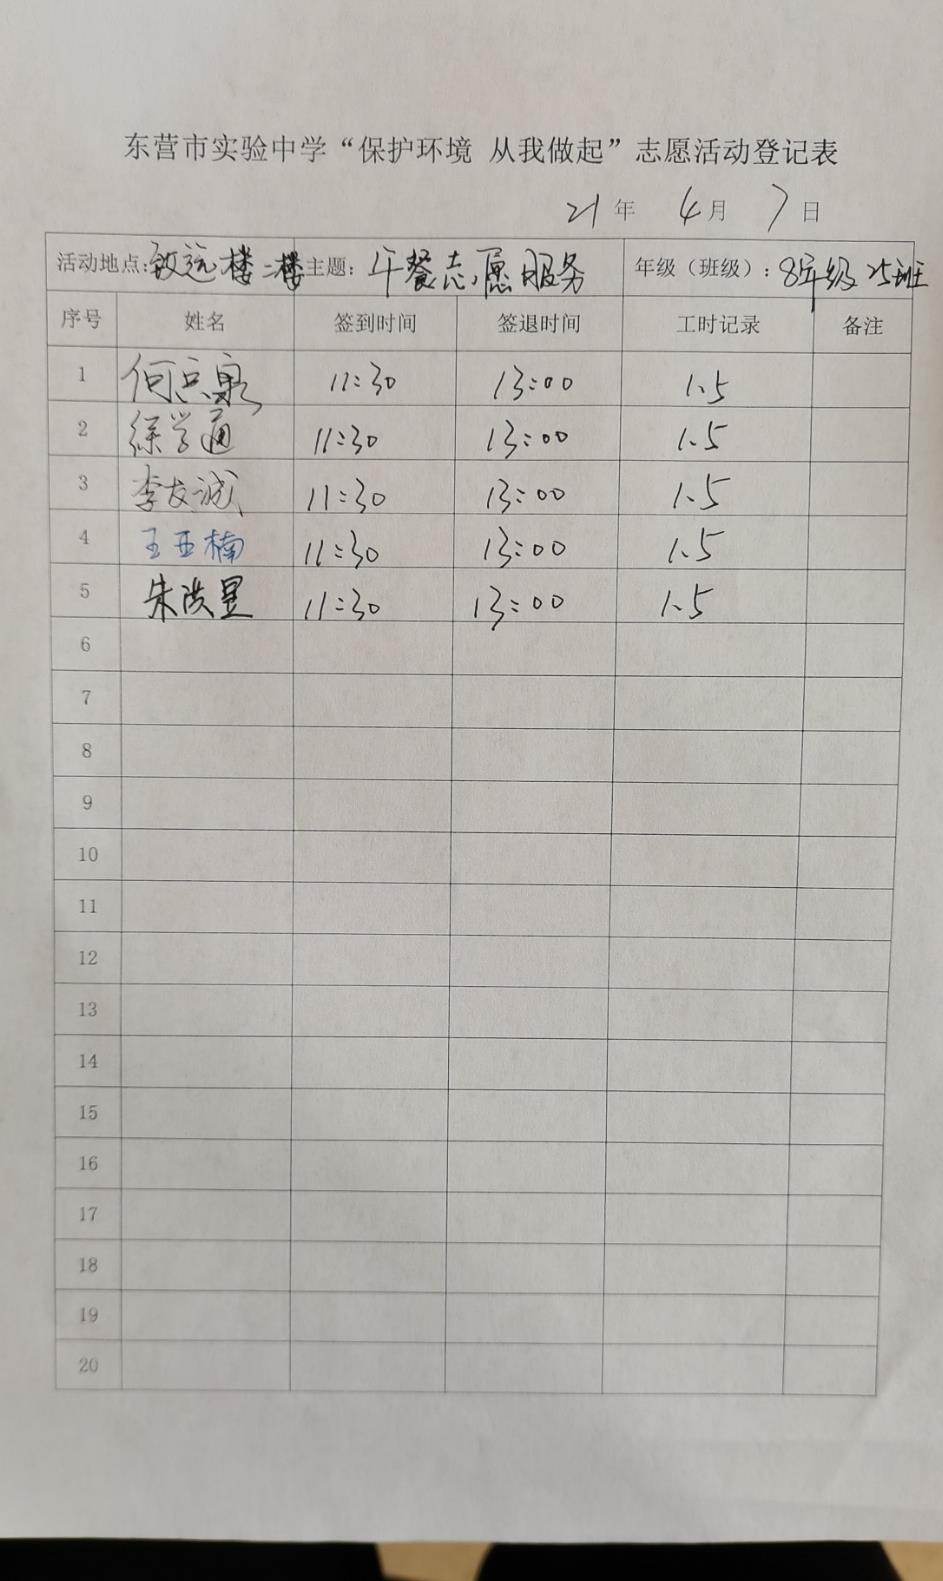 东营市实验中学“保护环境 从我做起”志愿活动登记表
21年 4月 7日
活动地点:致远楼二楼 主题:午餐志愿服务 年级(班级):8年级25班
序号 姓名 签到时间 签退时间 工时记录 备注
1 何 泉 11:30 13:00 1.5
2 徐学通 11:30 13:00 1.5
3 李友诚 11:30 13:00 1.5
4 王亚楠 11:30 13:00 1.5
5 朱洪昱 11:30 13:00 1.5
6
7
8
9
10
11
12
13
14
15
16
17
18
19
20